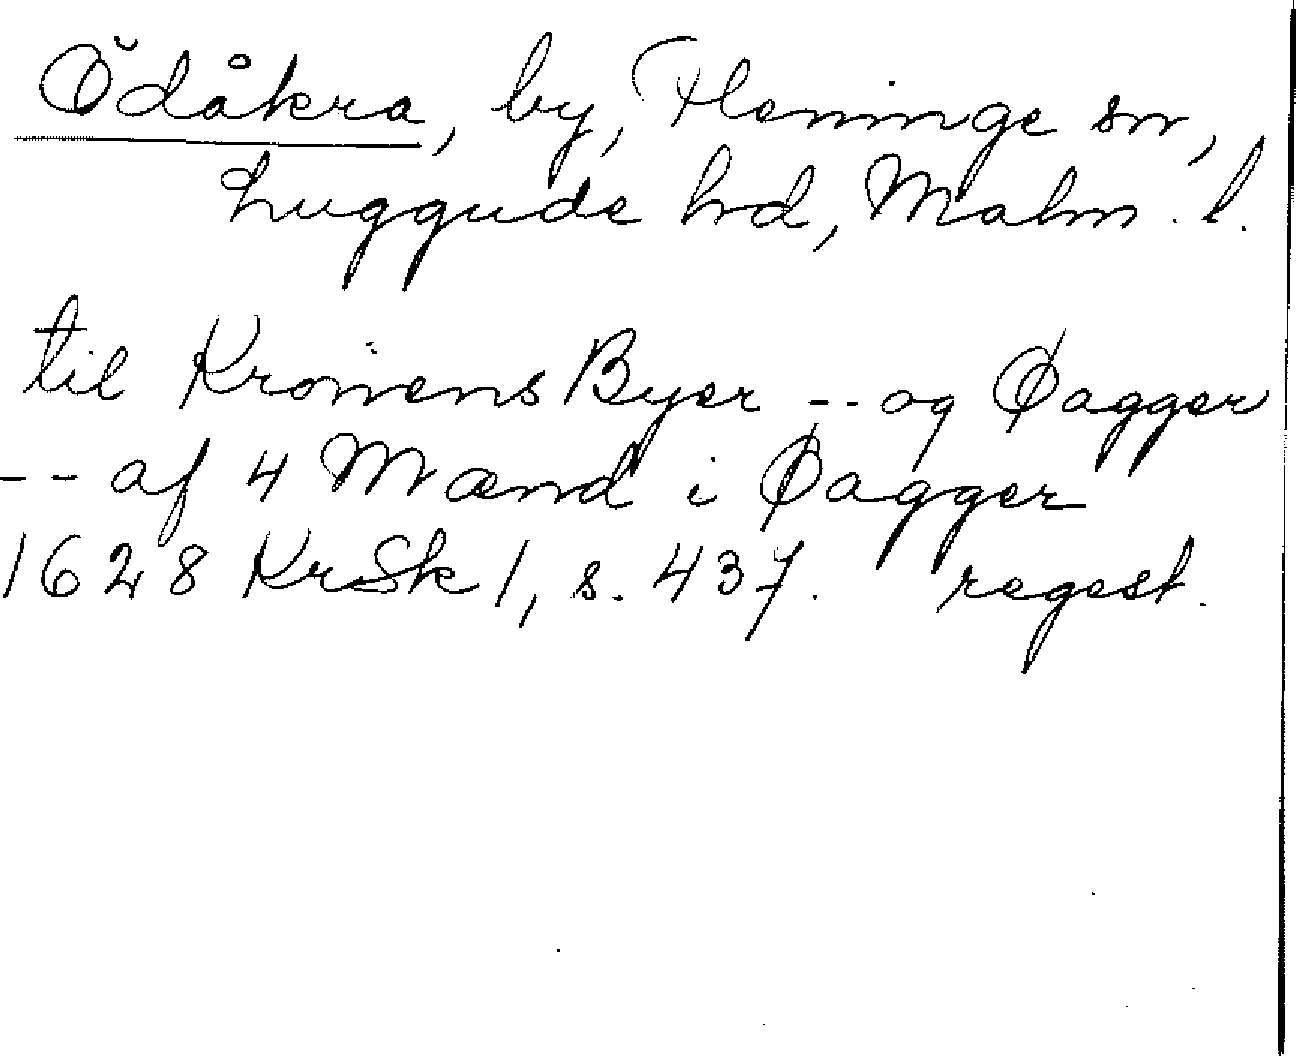 Ödåkra, by, Fleninge sn,
Luggude hd, Malm. l.
til Kronens Byer -- og Øagger
-- af 4 Mænd i Øagger
1628 KrSk 1, s. 437. regest.